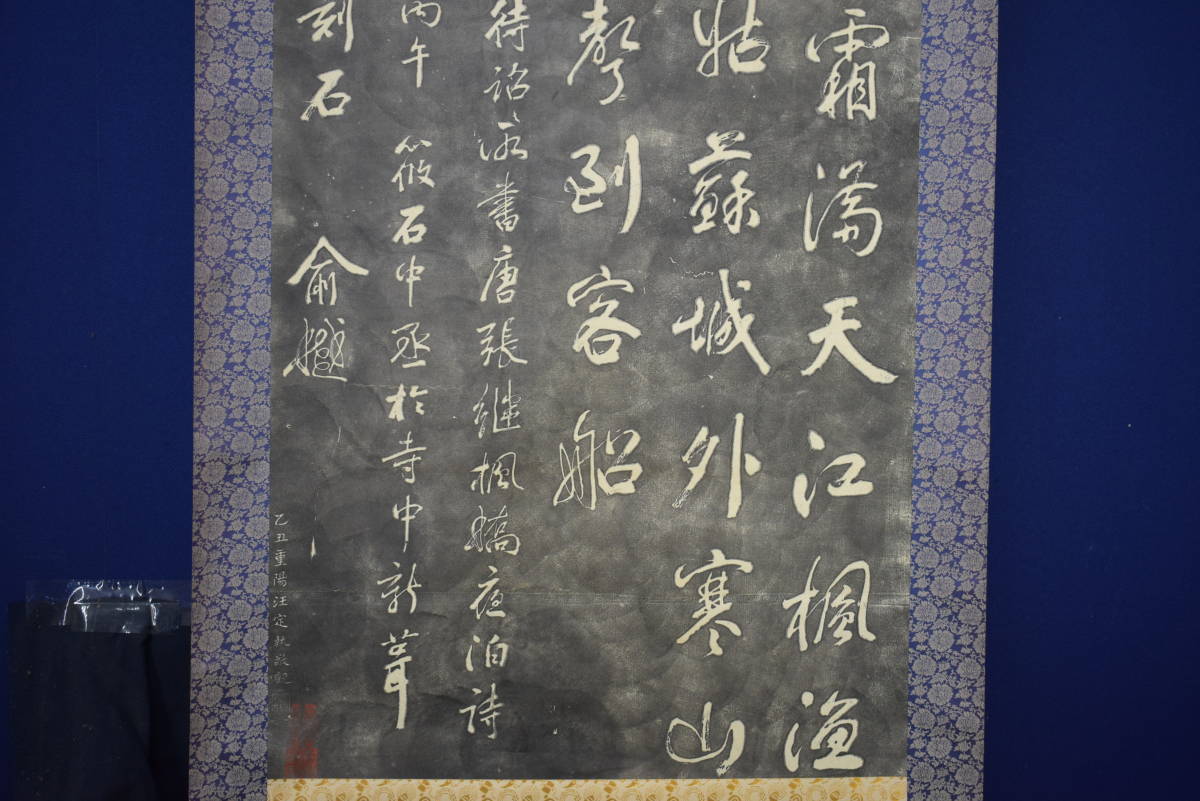 霜满天江楓漁
姑蘇城外寒山
聲到客船
待詔所書唐張繼楓橋夜泊詩
丙午 筱石中丞於寺中新葺
刻石 俞樾
乙丑重陽汪定執